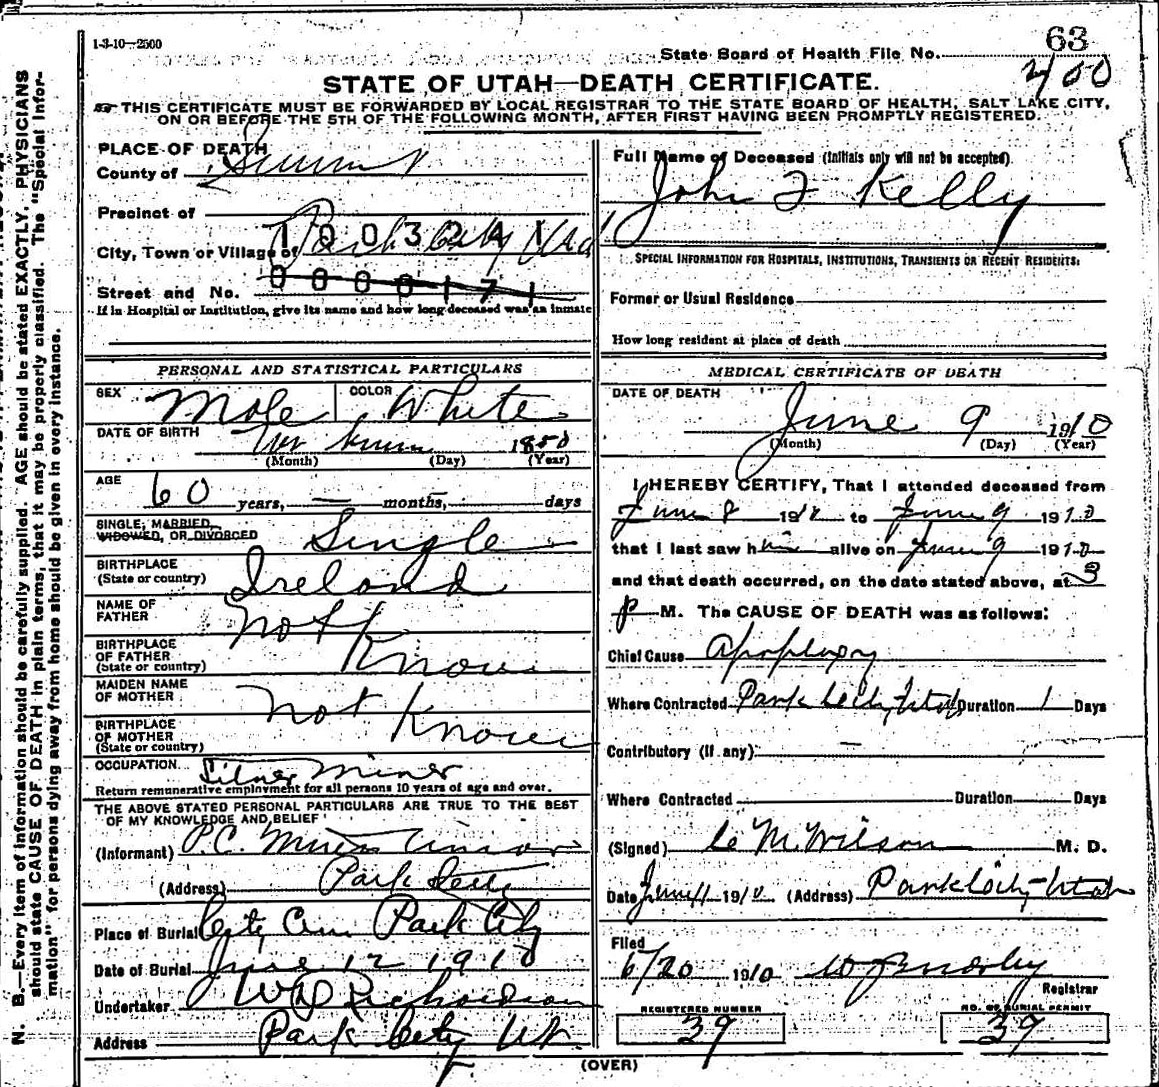 1-3-10—2500
State Board of Health File No. 63
400
STATE OF UTAH—DEATH CERTIFICATE.
THIS CERTIFICATE MUST BE FORWARDED BY LOCAL REGISTRAR TO THE STATE BOARD OF HEALTH, SALT LAKE CITY,
ON OR BEFORE THE 5TH OF THE FOLLOWING MONTH, AFTER FIRST HAVING BEEN PROMPTLY REGISTERED.
PLACE OF DEATH
County of Summit
Precinct of
City, Town or Village of Park City Utah
1003241
Street and No.
0000171
If in Hospital or Institution, give its name and how long deceased was an inmate
PERSONAL AND STATISTICAL PARTICULARS
SEX Male COLOR White
DATE OF BIRTH Not known 1850
(Month) (Day) (Year)
AGE 60 years, — months, days
SINGLE, MARRIED,
WIDOWED, OR DIVORCED Single
BIRTHPLACE
(State or country) Ireland
NAME OF
FATHER Not
BIRTHPLACE
OF FATHER
(State or country) Known
MAIDEN NAME
OF MOTHER Not
BIRTHPLACE
OF MOTHER
(State or country) Known
OCCUPATION Silver Miner
Return remunerative employment for all persons 10 years of age and over.
THE ABOVE STATED PERSONAL PARTICULARS ARE TRUE TO THE BEST
OF MY KNOWLEDGE AND BELIEF
(Informant) P.C. Miners Union
(Address) Park City
Place of Burial City Cem Park City
Date of Burial June 12 1910
Undertaker W D Richardson
Address Park City Ut.
Full Name of Deceased (Initials only will not be accepted)
John F Kelly
SPECIAL INFORMATION FOR HOSPITALS, INSTITUTIONS, TRANSIENTS OR RECENT RESIDENTS:
Former or Usual Residence
How long resident at place of death
MEDICAL CERTIFICATE OF DEATH
DATE OF DEATH
June 9 1910
(Month) (Day) (Year)
I HEREBY CERTIFY, That I attended deceased from
June 8 1910 to June 9 1910
that I last saw him alive on June 9 1910
and that death occurred, on the date stated above, at 3
P M. The CAUSE OF DEATH was as follows:
Chief Cause Apoplexy
Where Contracted Park City, Utah Duration 1 Days
Contributory (if any): —
Where Contracted Duration Days
(Signed) C M. Wilson M. D.
Date June 11 1910 (Address) Park City Utah
Filed
6/20 1910
Registrar
REGISTERED NUMBER
39
NO. OF BURIAL PERMIT
39
(OVER)
N. B.—Every item of information should be carefully supplied. AGE should be stated EXACTLY, PHYSICIANS
should state CAUSE OF DEATH in plain terms, that it may be properly classified. The "Special Infor-
mation" for persons dying away from home should be given in every instance.